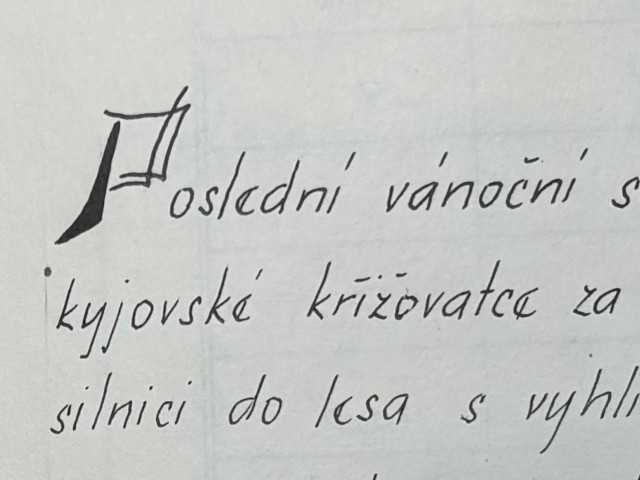 Poslední vánoční s
kyjovské křižovatce za
silnici do lesa s vyhli